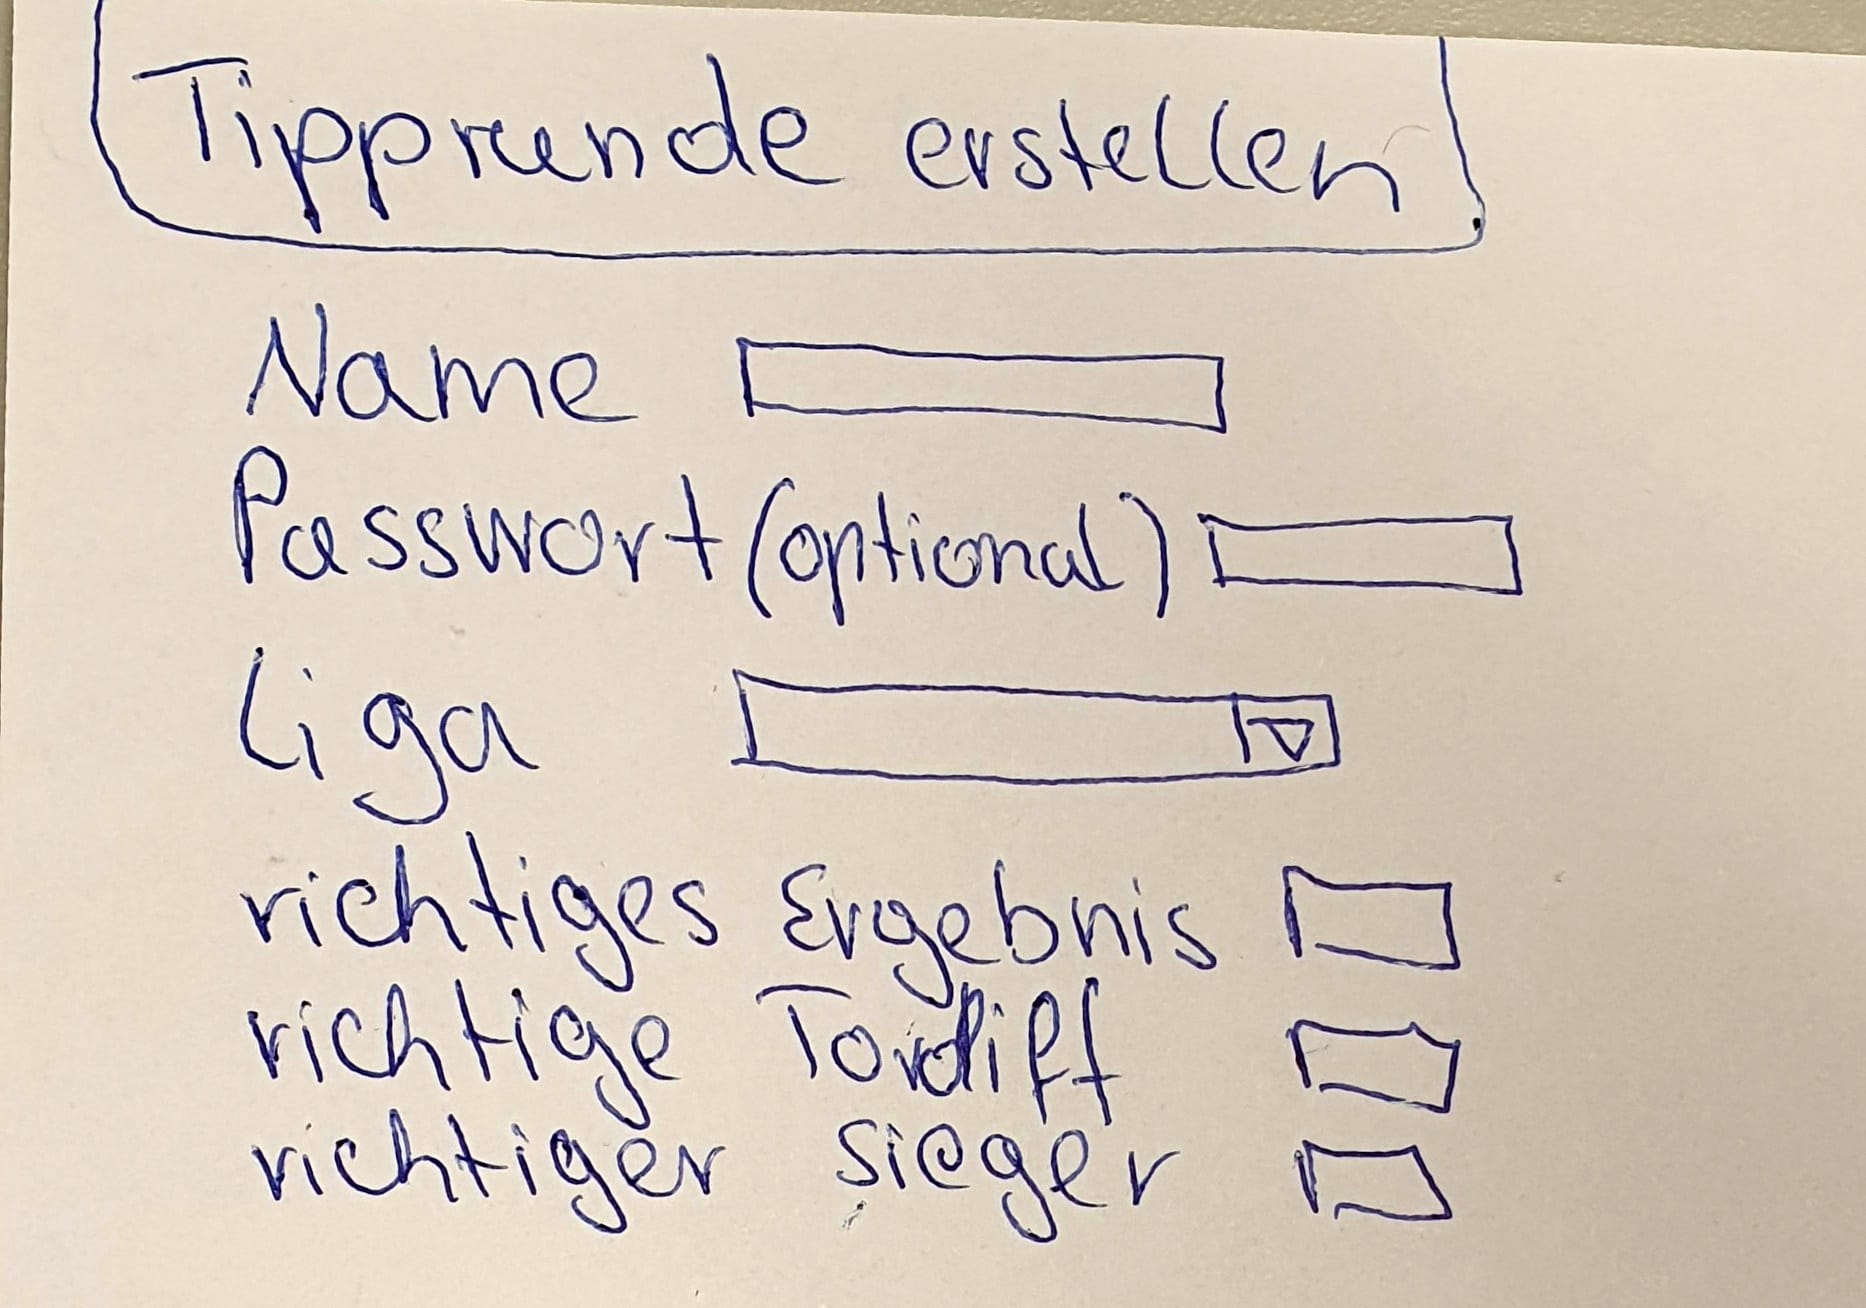 Tipprunde erstellen
Name
Passwort (optional)
Liga
richtiges Ergebnis
richtige Tordiff
richtiger Sieger